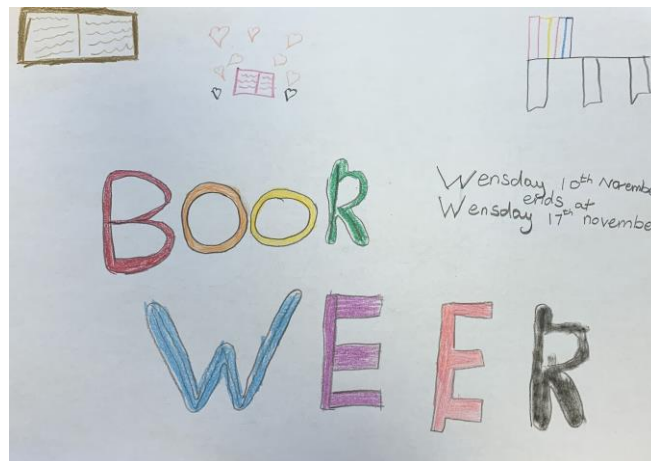 BOOR
WEER
Wensday 10th Novembe
ends at
Wensday 17th novembe